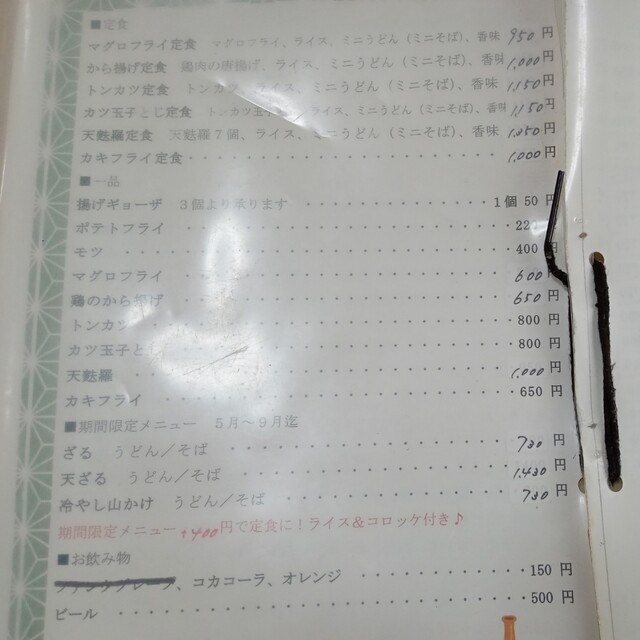 ■定食
マグロフライ定食 マグロフライ、ライス、ミニうどん（ミニそば）、香味 950 円
から揚げ定食 鶏肉の唐揚げ、ライス、ミニうどん（ミニそば）、香味 1,000 円
トンカツ定食 トンカツ、ライス、ミニうどん（ミニそば）、香味 1,150 円
カツ玉子とじ定食 トンカツ玉 ライス、ミニうどん（ミニそば）、香味 1,150 円
天麩羅定食 天麩羅７個、ライス、ミニうどん（ミニそば）、香味 円
カキフライ定食 ・・・・・・・・・・・・・・・・・・ 1,000 円
■一品
揚げギョーザ ３個より承ります ・・・・・・・・・・・ １個 50 円
ポテトフライ ・・・・・・・・・・・・・・・・・・ 22
モツ ・・・・・・・・・・・・・・・・・・・・・ 400
マグロフライ ・・・・・・・・・・・・・・・・・・ 600
鶏のから揚げ ・・・・・・・・・・・・・・・・・・ 650 円
トンカツ ・・・・・・・・・・・・・・・・・・・・ 800 円
カツ玉子とじ ・・・・・・・・・・・・・・・・・・ 800 円
天麩羅 ・・・・・・・・・・・・・・・・・・・・ 1,000 円
カキフライ ・・・・・・・・・・・・・・・・・・・ 650 円
■期間限定メニュー ５月～９月迄
ざる うどん／そば ・・・・・・・・・・・・・・ 730 円
天ざる うどん／そば ・・・・・・・・・・・・・ 1,430 円
冷やし山かけ うどん／そば ・・・・・・・・・・・ 730 円
期間限定メニュー+400円で定食に！ライス＆コロッケ付き♪
■お飲み物
、コカコーラ、オレンジ ・・・・・・・・ 150 円
ビール ・・・・・・・・・・・・・・・・・・・・ 500 円